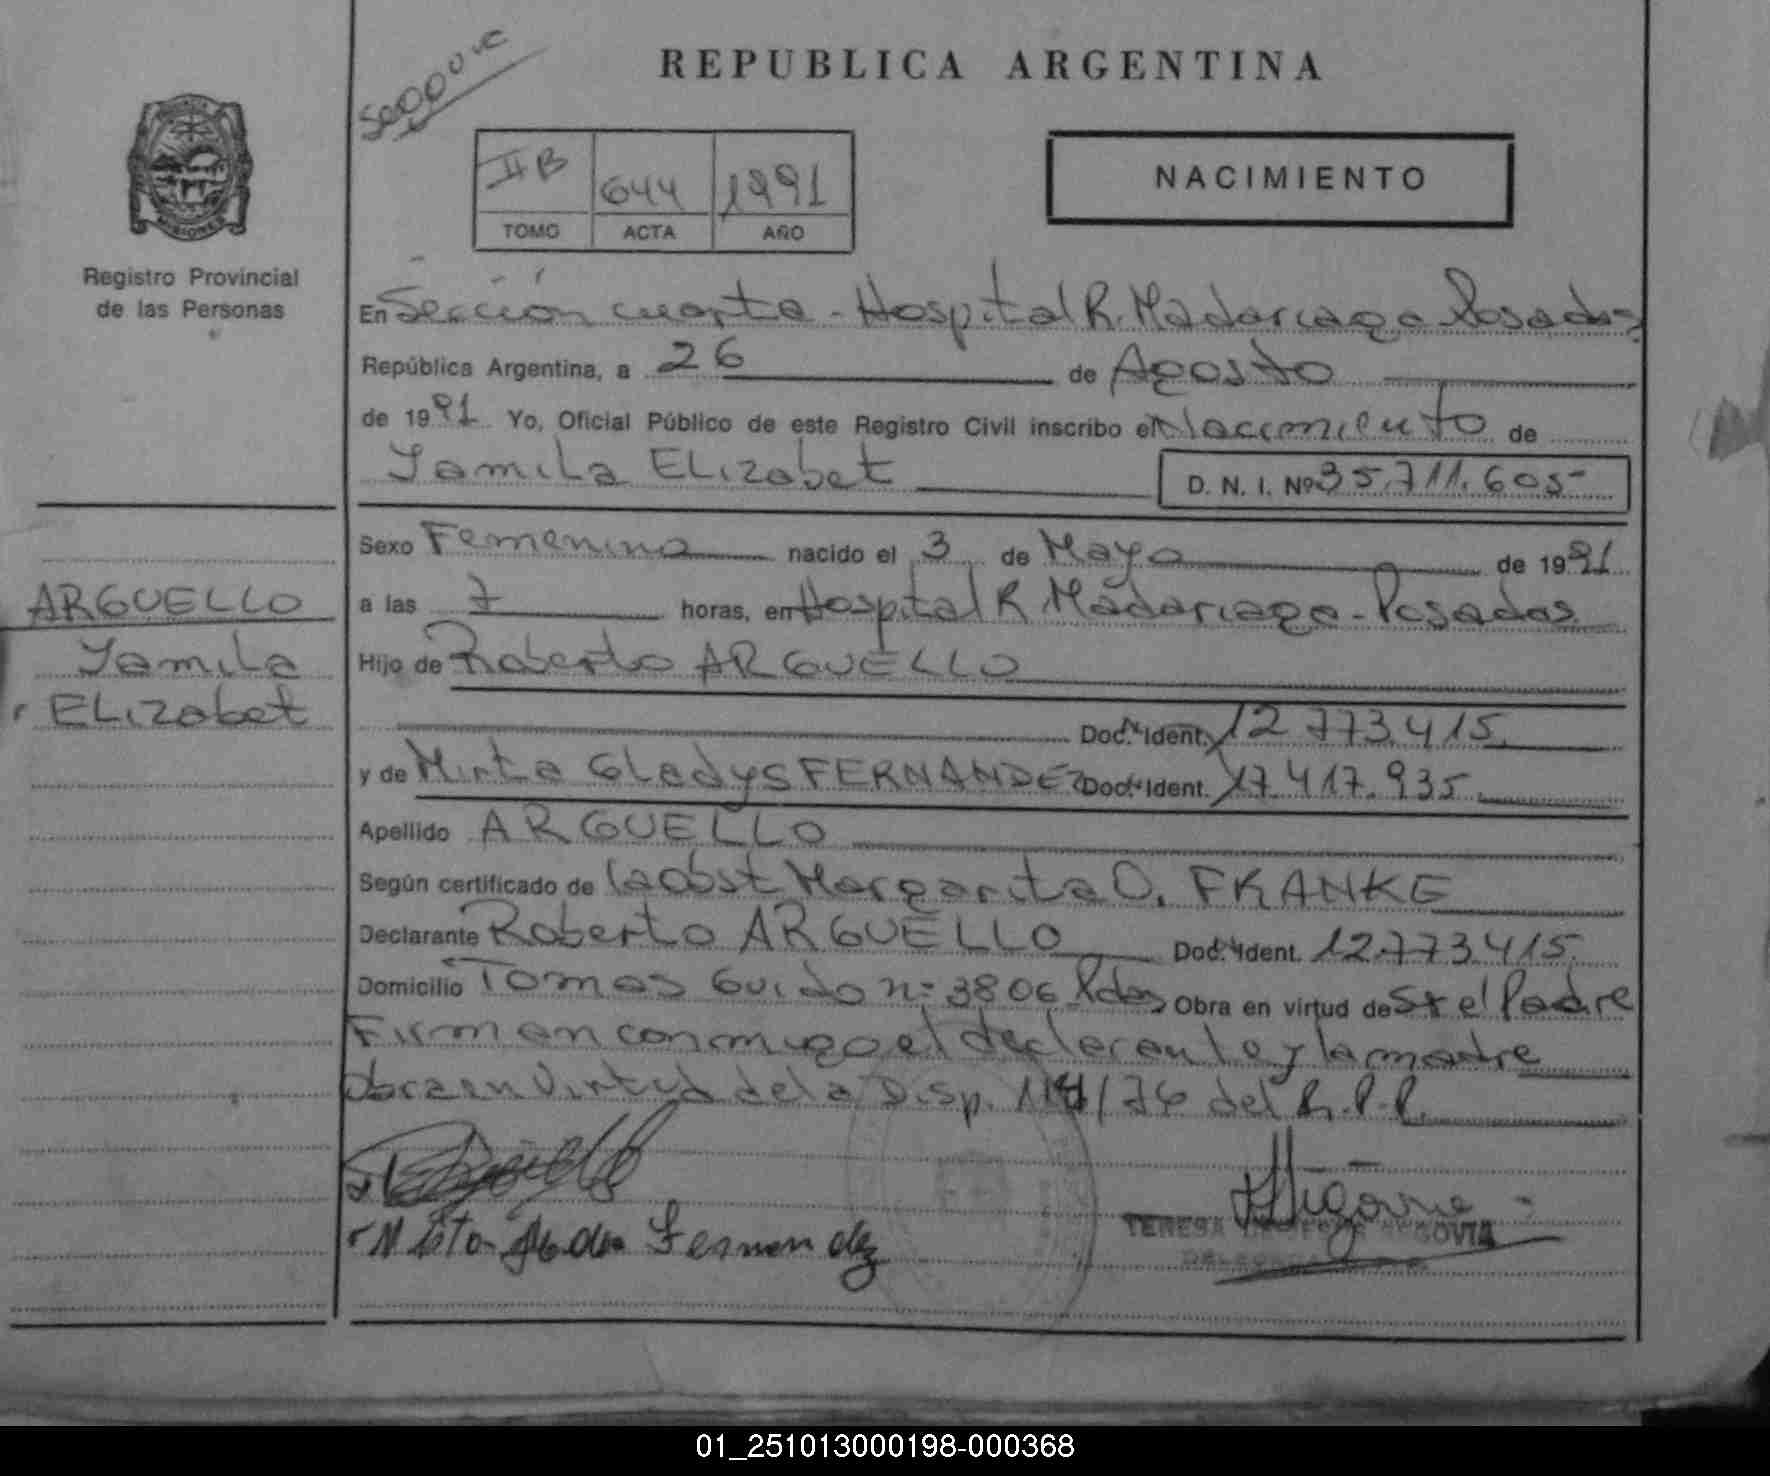 REPUBLICA ARGENTINA
NACIMIENTO
II B 644 1991
TOMO ACTA AÑO
MISIONES
Registro Provincial
de las Personas
En Sección cuarta - Hospital R. Madariaga Posadas
República Argentina, a 26 de Agosto
de 1991 Yo, Oficial Público de este Registro Civil inscribo el Nacimiento de
Yamila ELizabet D. N. I. Nº 35.711.605
Sexo Femenino nacido el 3 de Mayo de 1991
ARGUELLO
Yamila
ELizabet
a las 7 horas, en Hospital R Madariaga - Posadas
Hijo de Roberto ARGUELLO
Doc. Ident. 12.773.415
y de Mirta Gladys FERNANDEZ Doc. Ident. 17.417.935
Apellido ARGUELLO
Según certificado de la obst Margarita O. FRANKE
Declarante Roberto ARGUELLO Doc. Ident. 12.773.415
Domicilio Tomas Guido nº 3806 Pdas Obra en virtud de Sr el Padre
Firman conmigo el declarante y la madre
Obra en virtud de la Disp. /76 del R.P.P.
Fernandez
TERESA SEGOVIA
01_251013000198-000368